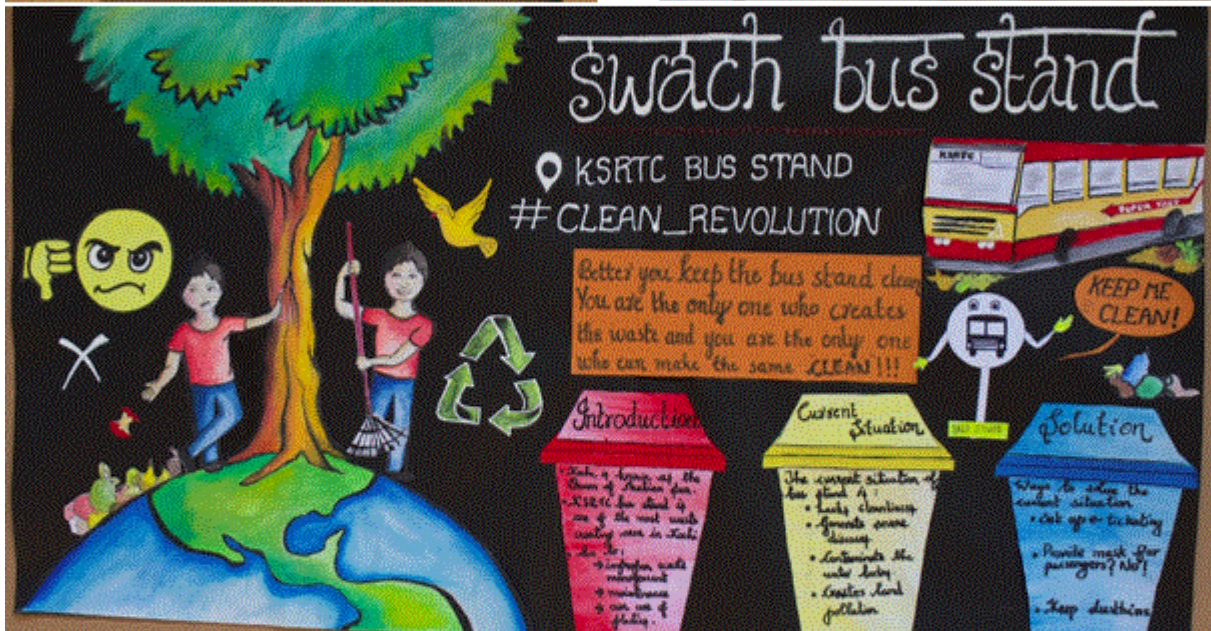 swach bus stand
KSRTC BUS STAND
#CLEAN_REVOLUTION
KSRTC
Better you keep the bus stand clean
You are the only one who creates
the waste and you are the only one
who can make the same CLEAN!!!
KEEP ME
CLEAN!
Introduction
is known as the
Queen of Arabian
KSRTC bus stand is
one of the most waste
creating area in Kochi
waste
plastic.
Current
Situation
The current situation of
bus stand
Lacks cleanliness
Generate severe
diseases
Contaminate the
water body
Creates land
pollution
Solution
Ways to solve the
current situation
Set up e-ticketing
Provide mask for
passengers? No!
Keep dustbins